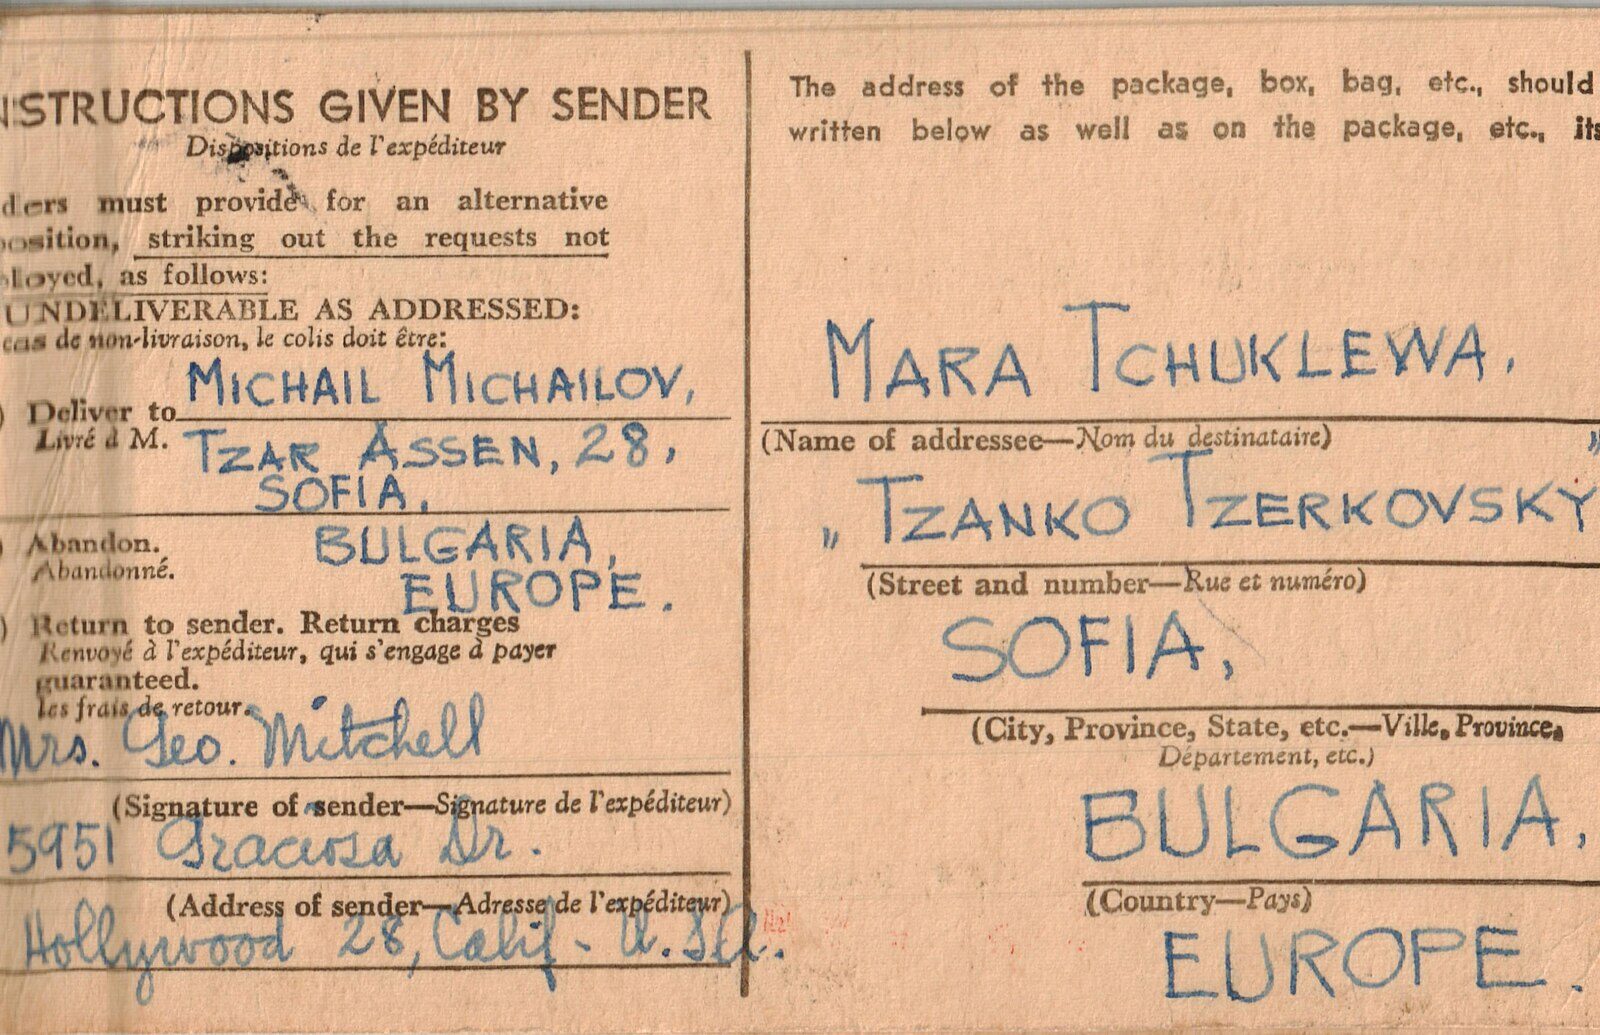 NSTRUCTIONS GIVEN BY SENDER
Dispositions de l'expéditeur
ders must provide for an alternative
position, striking out the requests not
loyed, as follows:
UNDELIVERABLE AS ADDRESSED:
cas de non-livraison, le colis doit être:
) Deliver to MICHAIL MICHAILOV,
Livré à M. TZAR ASSEN, 28,
SOFIA,
) Abandon. BULGARIA,
Abandonné. EUROPE.
) Return to sender. Return charges
Renvoyé à l'expéditeur, qui s'engage à payer
guaranteed.
les frais de retour.
Mrs. Geo. Mitchell
(Signature of sender—Signature de l'expéditeur)
5951 Graciosa Dr.
(Address of sender—Adresse de l'expéditeur)
Hollywood 28, Calif - U.S.A.
The address of the package, box, bag, etc., should
written below as well as on the package, etc., its
MARA TCHUKLEWA,
(Name of addressee—Nom du destinataire)
„ TZANKO TZERKOVSKY”
(Street and number—Rue et numéro)
SOFIA,
(City, Province, State, etc.—Ville, Province,
Département, etc.)
BULGARIA,
(Country—Pays)
EUROPE.